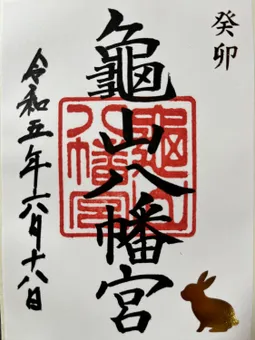 癸卯
龜山八幡宮
龜山八幡宮
令和五年六月十八日